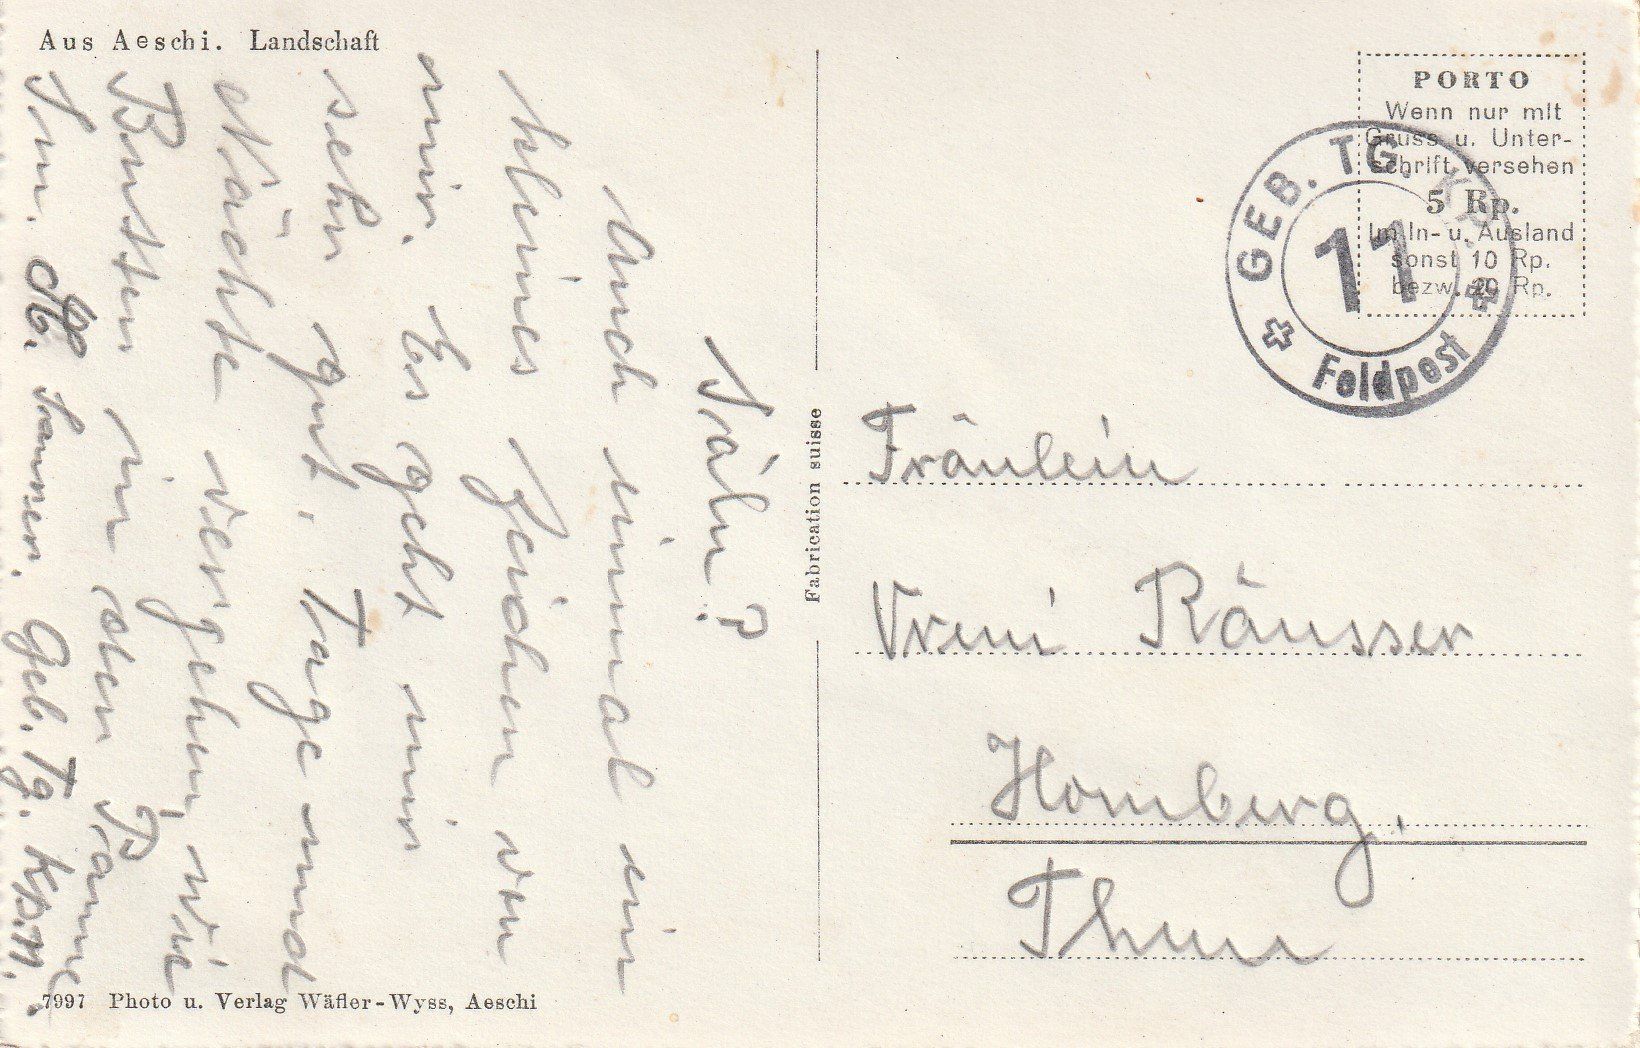 Aus Aeschi. Landschaft
Sälü?
Auch einmal ein
kleines Zeichen von
mir. Es geht mir
sehr gut, Tage und
Nächte vergehen, wie
Butter in der Pfanne
Geb. Tg. Kp. 11.
7997 Photo u. Verlag Wäfler-Wyss, Aeschi
Fabrication suisse
PORTO
Wenn nur mit
Gruss u. Unter-
schrift versehen
5 Rp.
Im In- u. Ausland
sonst 10 Rp.
bezw. 20 Rp.
GEB. TG. KP.
11
Feldpost
Fräulein
Vreni Räusser
Homberg,
Thun